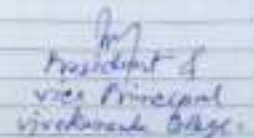 President &
vice Principal
Vivekananda College.